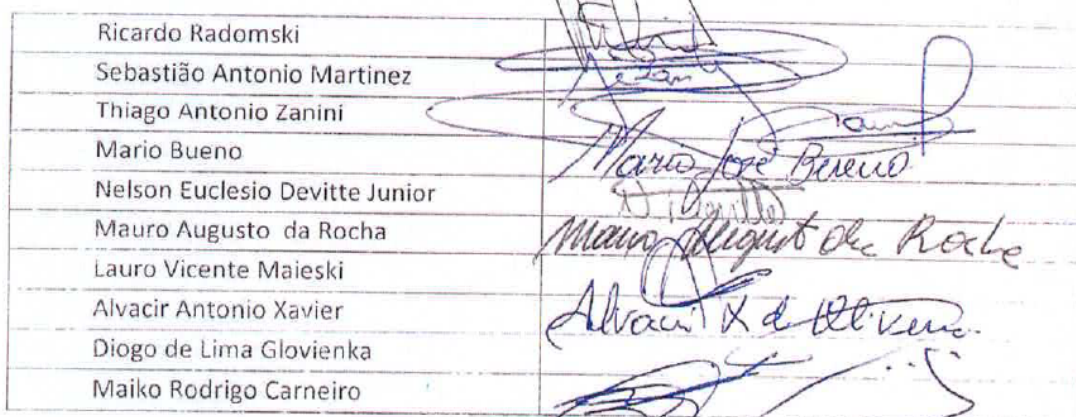 Ricardo Radomski
Sebastião Antonio Martinez
Thiago Antonio Zanini
Mario Bueno Mario José Bueno
Nelson Euclesio Devitte Junior
Mauro Augusto da Rocha Mauro August da Rocha
Lauro Vicente Maieski
Alvacir Antonio Xavier Alvacir X de Oliveira
Diogo de Lima Glovienka
Maiko Rodrigo Carneiro